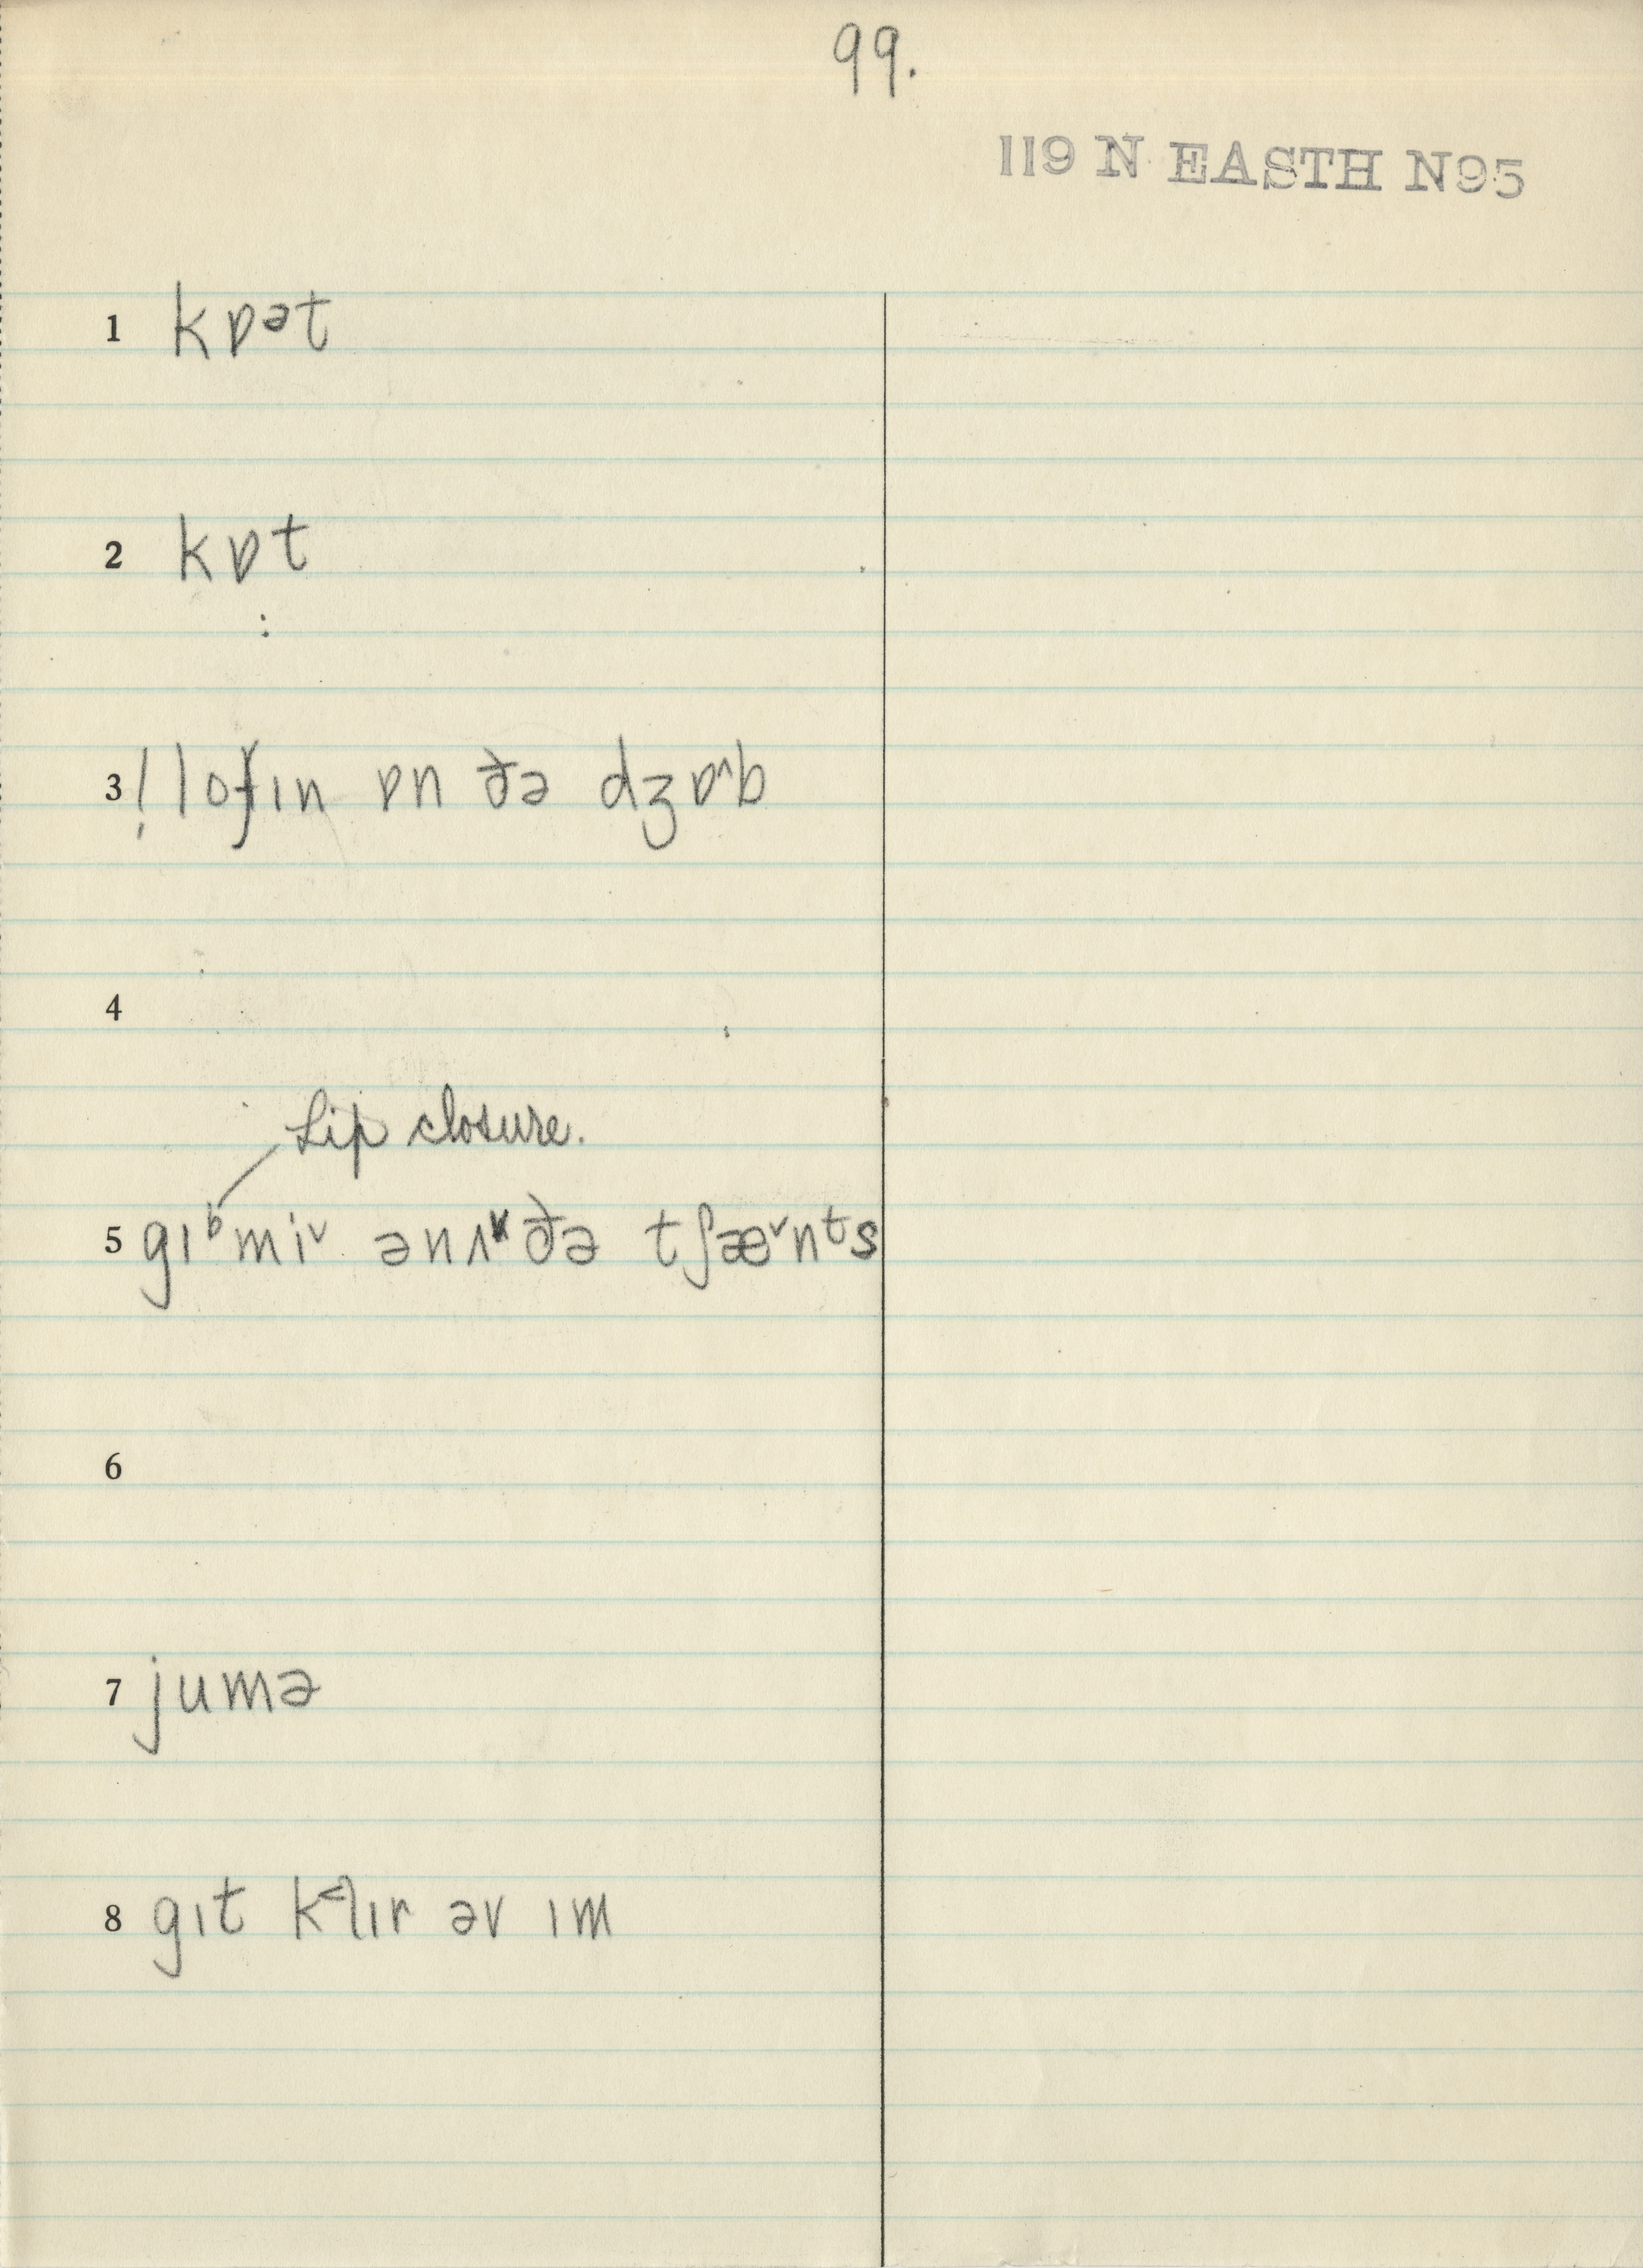 99.
119 N EASTH N95
1 kɒᵊt
2 kɒt
3 ! lofɪn ɒn ðə dʒɒ˄b
4
Lip closure.
5 gɪᵇmi˅ ənʌ ðə tʃæ˅nᵗs
6
7 jumə
8 gɪt k˂lɪr əv ɪm